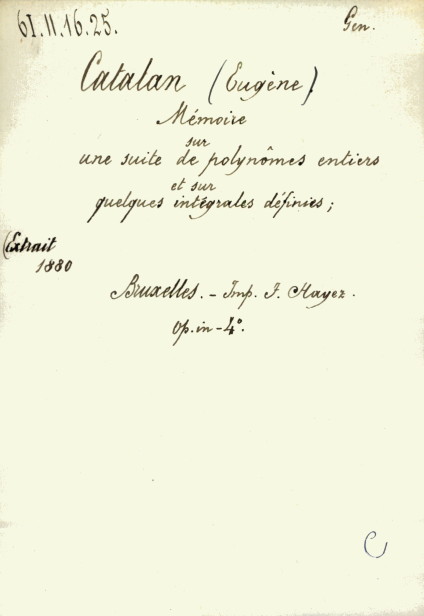 61.II.16.25.
Gen.
Catalan (Eugène)
Mémoire
sur
une suite de polynômes entiers
et sur
quelques intégrales définies;
(Extrait
1880
Bruxelles. - Imp. F. Hayez.
Op. in-4°.
C